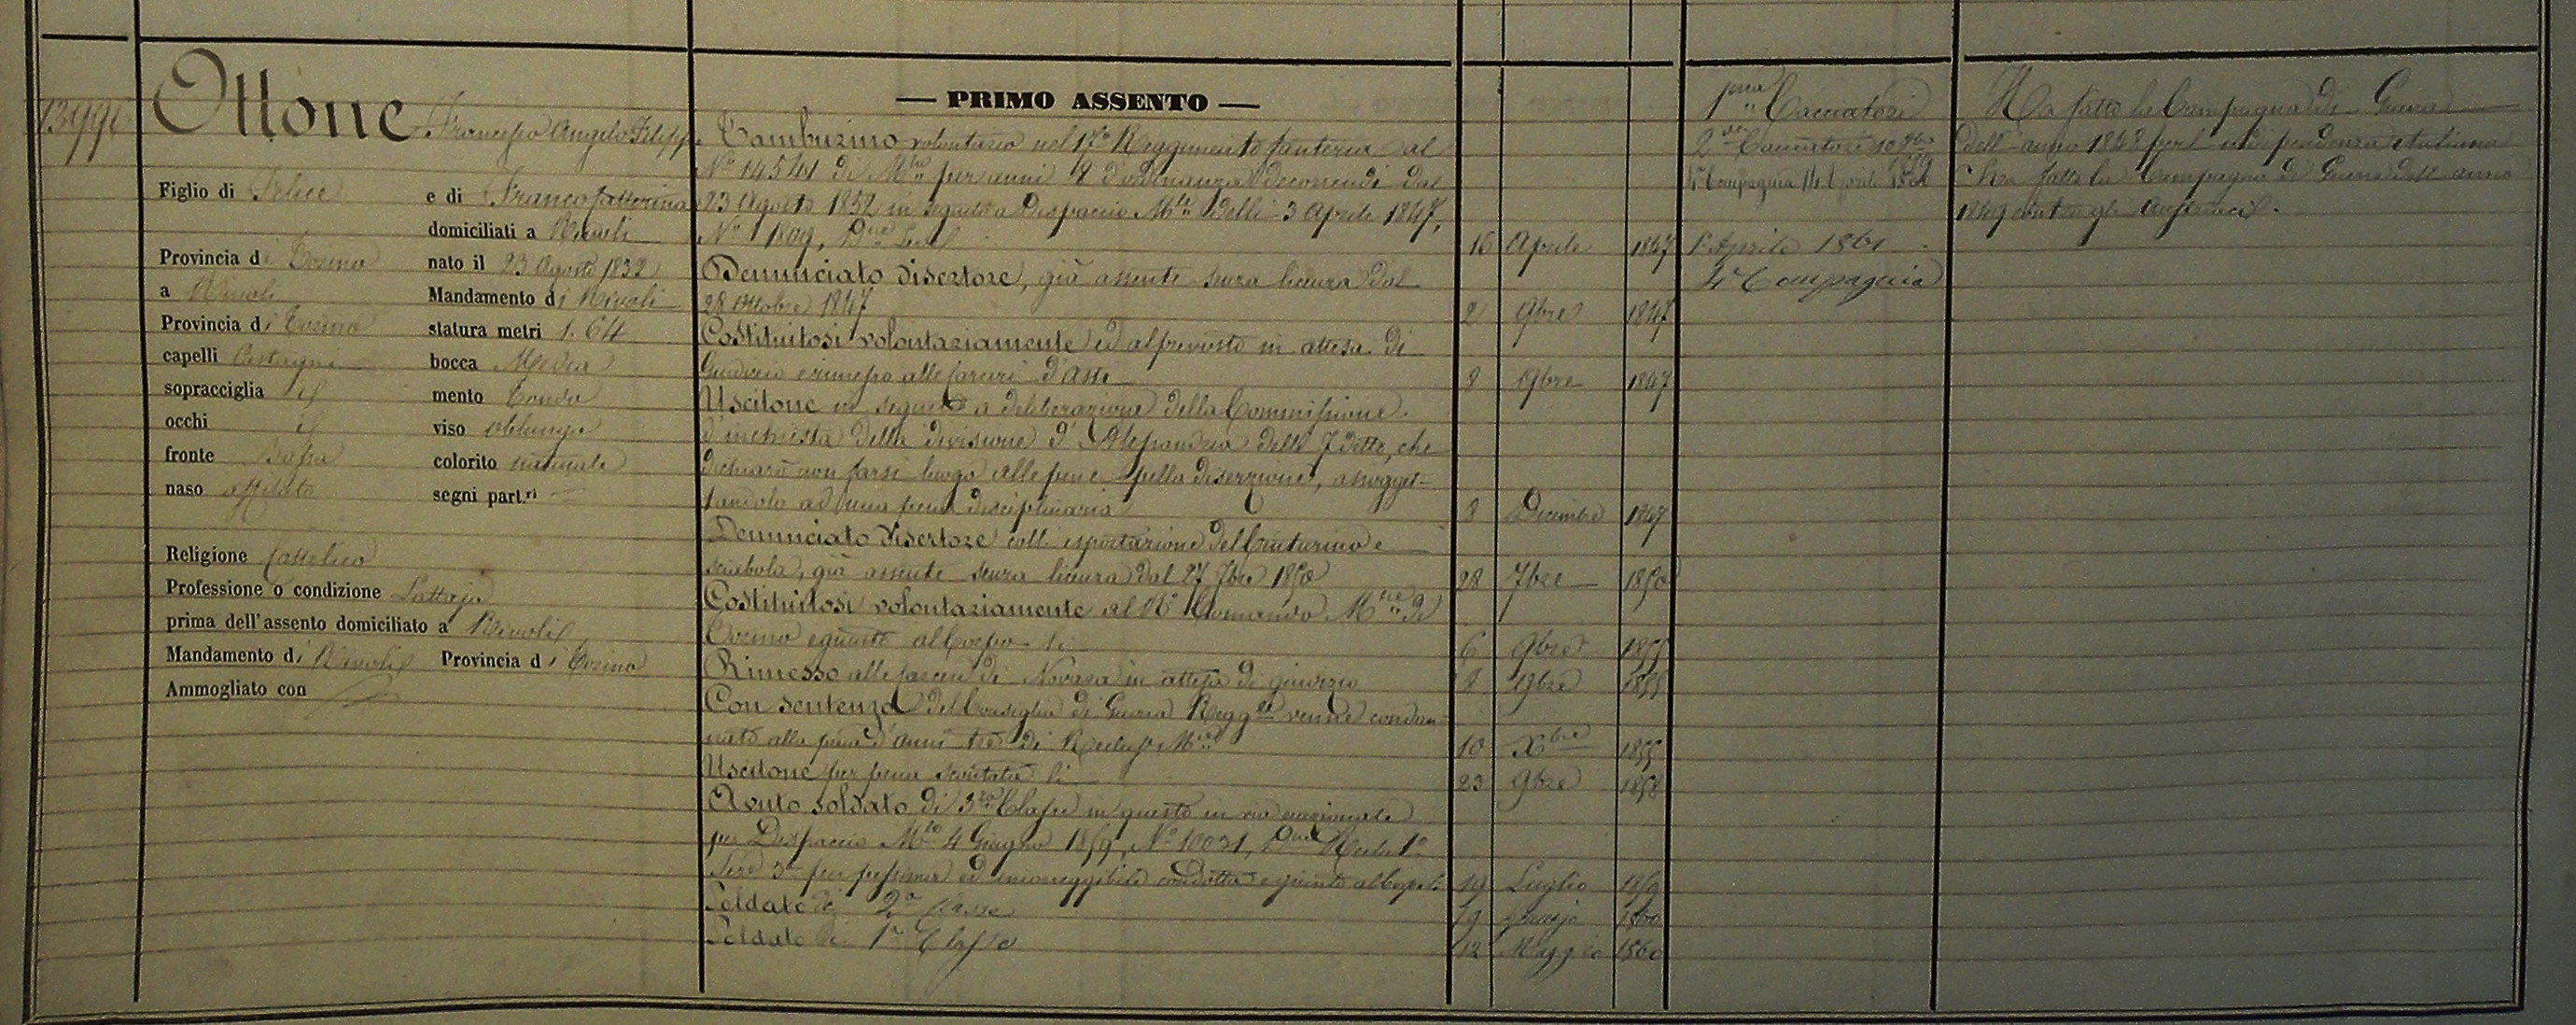 13991
Ottone Francesco Angelo Filippo
Figlio di Felice e di Franco Catterina
domiciliati a Rivoli
Provincia di Torino nato il 23 Agosto 1832
a Rivoli Mandamento di Rivoli
Provincia di Torino statura metri 1. 64
capelli Castagni bocca Media
sopracciglia id mento Tondo
occhi id viso oblungo
fronte Bassa colorito naturale
naso affilato segni part.ri —
Religione Cattolico
Professione o condizione Lattajo
prima dell'assento domiciliato a Rivoli
Mandamento di Rivoli Provincia di Torino
Ammogliato con
— PRIMO ASSENTO —
Tamburino volontario nel 17º Reggimento fanteria al
Nº 14541 di Mla per anni 8 d'ordinanza decorrendi dal
23 Agosto 1852 in seguito a Dispaccio Mle delli 3 Aprile 1847,
Nº 1809, 16 Aprile 1847
Denunciato disertore, già assente senza licenza dal
28 Ottobre 1847 2 9bre 1847
Costituitosi volontariamente ed in attesa di
Giudicio e rimesso alle carceri d'Asti 8 9bre 1847
Uscitone in seguito a deliberazione della Commissione
d'inchiesta della divisione d'Alessandria delli 7 detto, che
dichiarò non farsi luogo alle pene sulla diserzione, assogget-
tandolo ad una pena disciplinaria 8 Dicembre 1847
Denunciato disertore coll' esportazione del Centurino e
sciabola, già assente senza licenza dal 27 7bre 1850 28 7bre 1850
Costituitosi volontariamente al Rº Comando Mre di
Torino e giunto al Corpo li 6 9bre 1855
Rimesso alle carceri di Novara in attesa di giudizio 8 9bre 1855
Con sentenza del Consiglio di Guerra Reggle venne condan-
nato alla pena d'anni tre di Reclusne Mre 10 Xbre 1855
Uscitone per pena scontata li 23 9bre 1858
Avuto soldato di 3za Classe in questo in via eccezionale
per Dispaccio Mle 4 Giugno 1859, Nº 10031,
per pessima ed incorreggibile condotta e giunto al Corpo li 19 Luglio 1859
Soldato di 2a Classe 19 gennajo 1860
Soldato di 1a Classe 12 Maggio 1860
1ma Cacciatori
2da Cacciatori 10 9bre 1859
4a Compagnia 14 Aprile
1º Aprile 1861
4a Compagnia
Ha fatto la Campagna di Guerra
dell' anno 1848 per l'indipendenza italiana
Ha fatto la Campagna di Guerra dell' anno
1849 contro gli Austriaci.